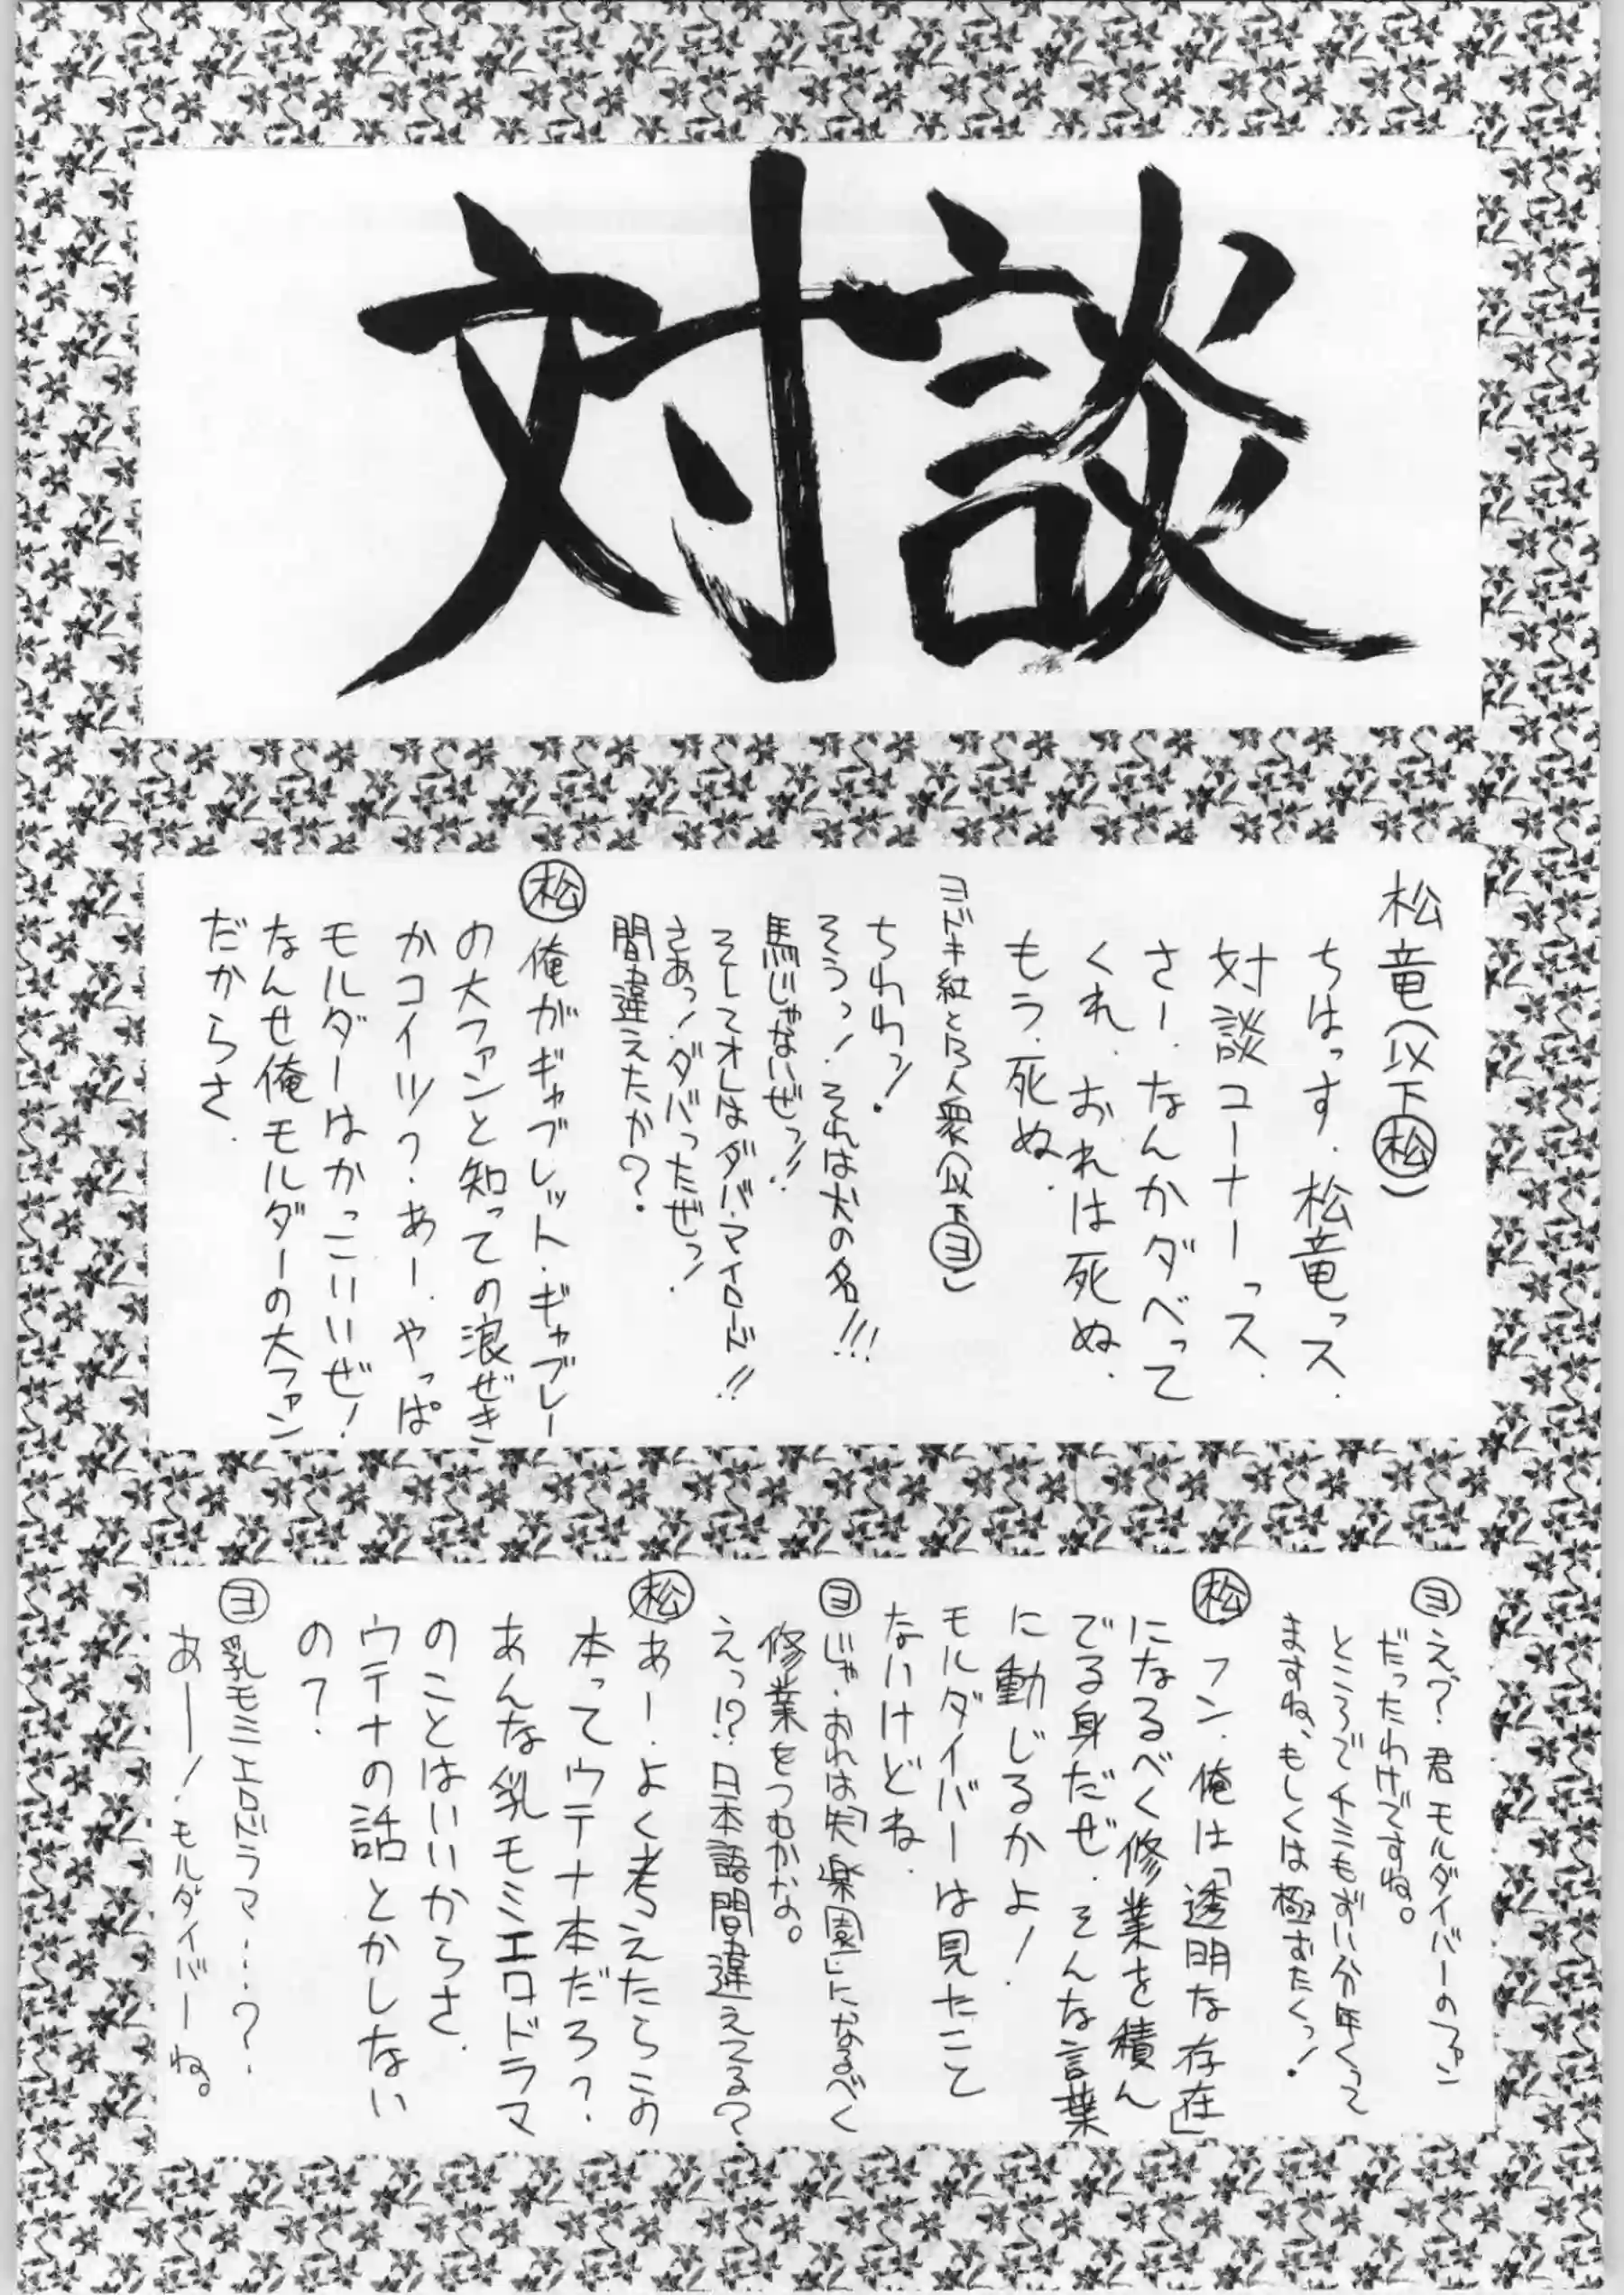 対談
松竜(以下松)
ちはっす.松竜っス.
対談コーナーっス.
さー.なんかダベって
くれ.おれは死ぬ.
もう.死ぬ.
ヨドキ紅と乃人衆(以下ヨ)
ちわわッ!
そうっ!それは犬の名!!!
馬じゃないぜっ!!
そしてオレはダバ・マイロード!!
さあっ!ダバったぜっ!
間違えたか?
松 俺がギャブレット・ギャブレー
の大ファンと知っての浪ぜき
かコイツ?.あー.やっぱ
モルダーはかっこいいぜ!
なんせ俺モルダーの大ファン
だからさ.
ヨ え?君モルダイバーのファン
だったわけですね。
ところでチミもずい分年くって
ますね、もしくは極ずたくっ!
松 フン.俺は「透明な存在」
になるべく修業を積ん
でる身だぜ.そんな言葉
に動じるかよ!
モルダイバーは見たこと
ないけどね.
ヨ じゃ.おれは「失楽園」になるべく
修業をつむかな。
えっ!?日本語間違えてる?
松 あー.よく考えたらこの
本ってウテナ本だろ?.
あんな乳モミエロドラマ
のことはいいからさ.
ウテナの話とかしない
の?.
ヨ 乳モミエロドラマ....?.
あーー!モルダイバーね。